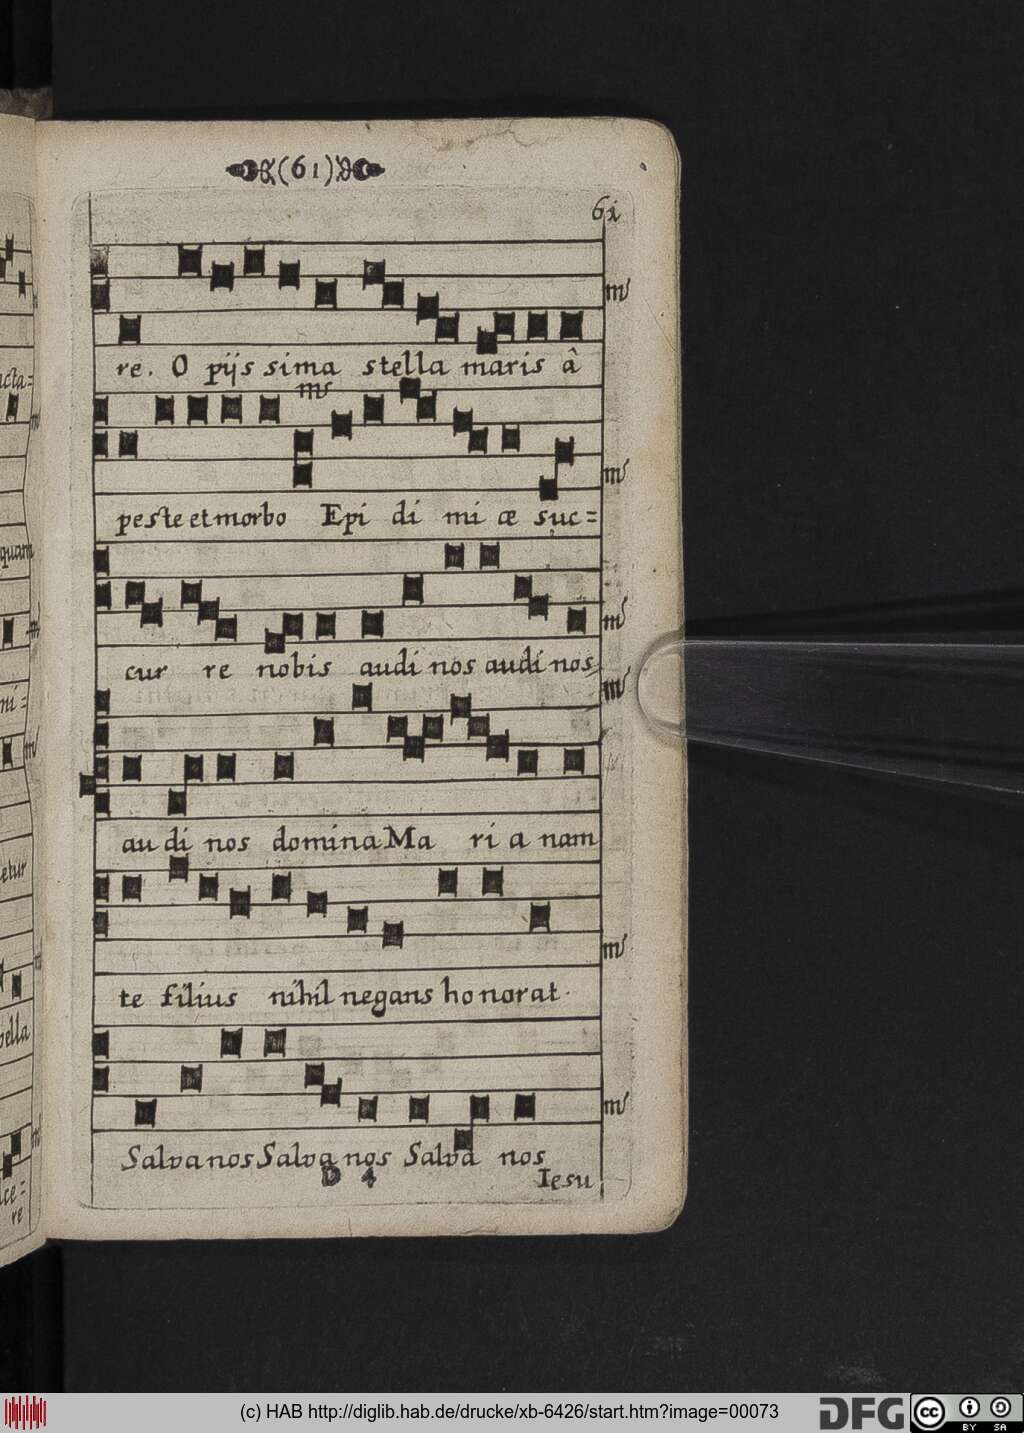 (61)
61
re. O pijs sima stella maris â
peste et morbo Epi di mi æ suc=
cur re nobis audi nos audi nos
au di nos domina Ma ri a nam
te filius nihil negans ho norat.
Salva nos Salva nos Salva nos
D 4
Iesu
acta=
quam
mi=
etur
pella
ce=
re
(c) HAB http://diglib.hab.de/drucke/xb-6426/start.htm?image=00073
DFG
cc
BY SA